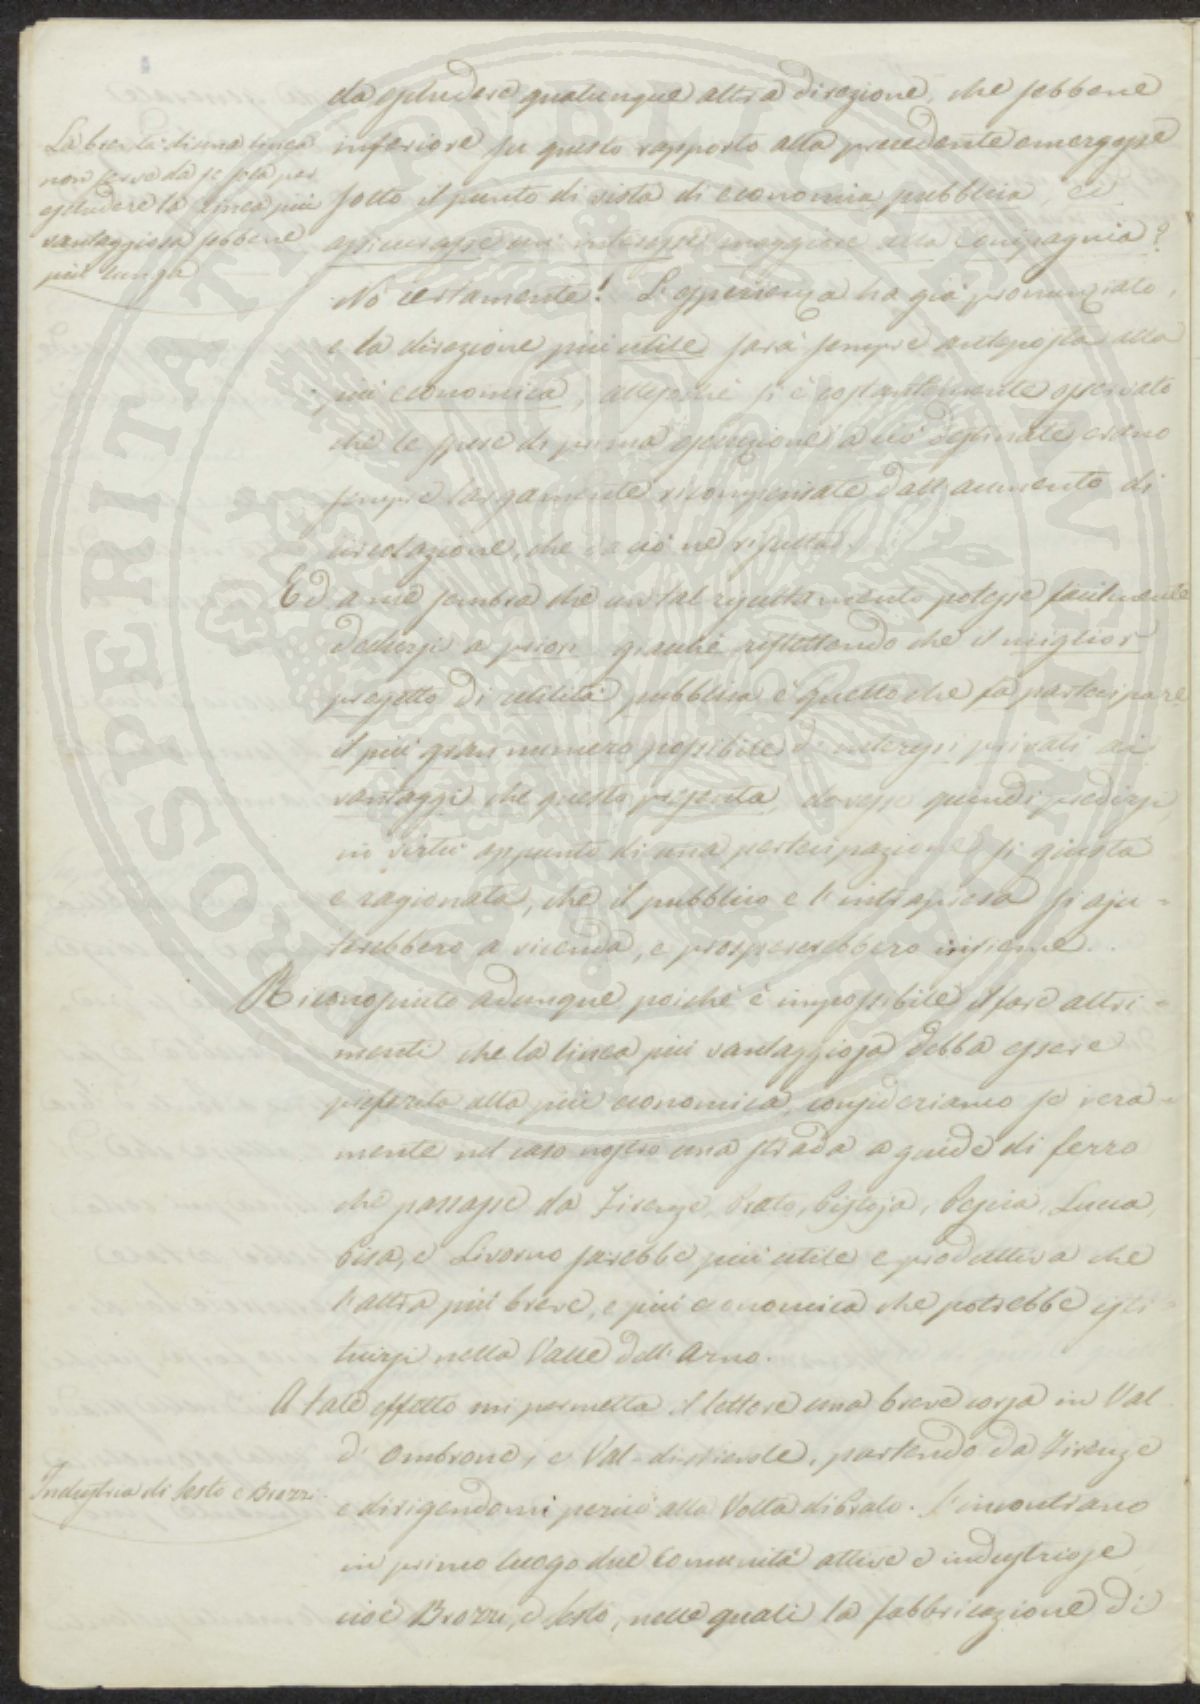 da escludere qualunque altra direzione, che sebbene
La brevità di una linea
non serve da se sola per
escludere la linea più
vantaggiosa sebbene
più lunga
inferiore su questo rapporto alla precedente emergesse
sotto il punto di vista di economia pubblica, ed
assicurasse un' interesse maggiore alla Compagnia?
Nò certamente! L'esperienza ha già pronunziato,
e la direzione più utile sarà sempre anteposta alla
più economica, attesochè si è costantemente osservato
che le spese di prima esecuzione a ciò destinate erano
sempre largamente ricompensate dall'aumento di
circolazione, che da ciò ne risulta.
Ed a me sembra che un tal resultamento potesse facilmente
dedursi a priori giacchè riflettendo che il miglior
progetto di utilità pubblica è quello che fa partecipare
il più gran numero possibile d'interessi privati ai
vantaggi che questo presenta, dovesse quindi predirsi,
in virtù appunto di una partecipazione sì giusta
e ragionata, che il pubblico e l'intrapresa si aju-
terebbero a vicenda, e prospererebbero insieme.
Riconosciuto adunque poichè è impossibile il fare altri-
menti che la linea più vantaggiosa debba essere
preferita alla più economica, consideriamo se vera-
mente nel caso nostro una strada a guide di ferro
che passasse da Firenze, Prato, Pistoja, Pescia, Lucca,
Pisa, e Livorno sarebbe più utile e produttiva che
l'altra più breve, e più economica che potrebbe isti-
tuirsi nella Valle dell'Arno.
A tale effetto mi permetta il lettore una breve corsa in Val
d'Ombrone, e Val-di-nievole, partendo da Firenze
Industria di Sesto e Brozzi.
e dirigendomi perciò alla Volta di Prato. S'incontrano
in primo luogo due Comunità attive e industriose
cioè Brozzi, e Sesto, nelle quali la fabbricazione di